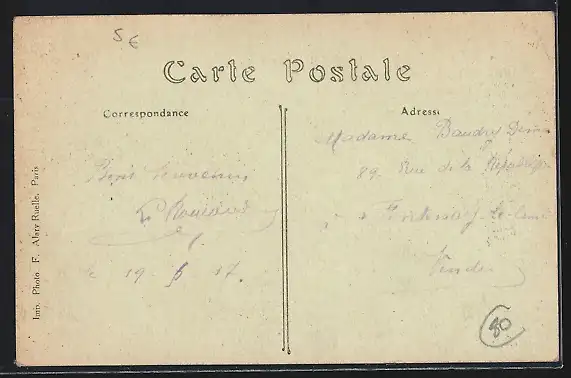 5 €
Carte Postale
Correspondance
Adresse
Madame Baudry
89 Rue de la République
Fontenay-le-Comte
Vendée
Bons souvenirs
le 19 - 6 - 17.
Imp. Photo F. Alary Ruelle, Paris
80